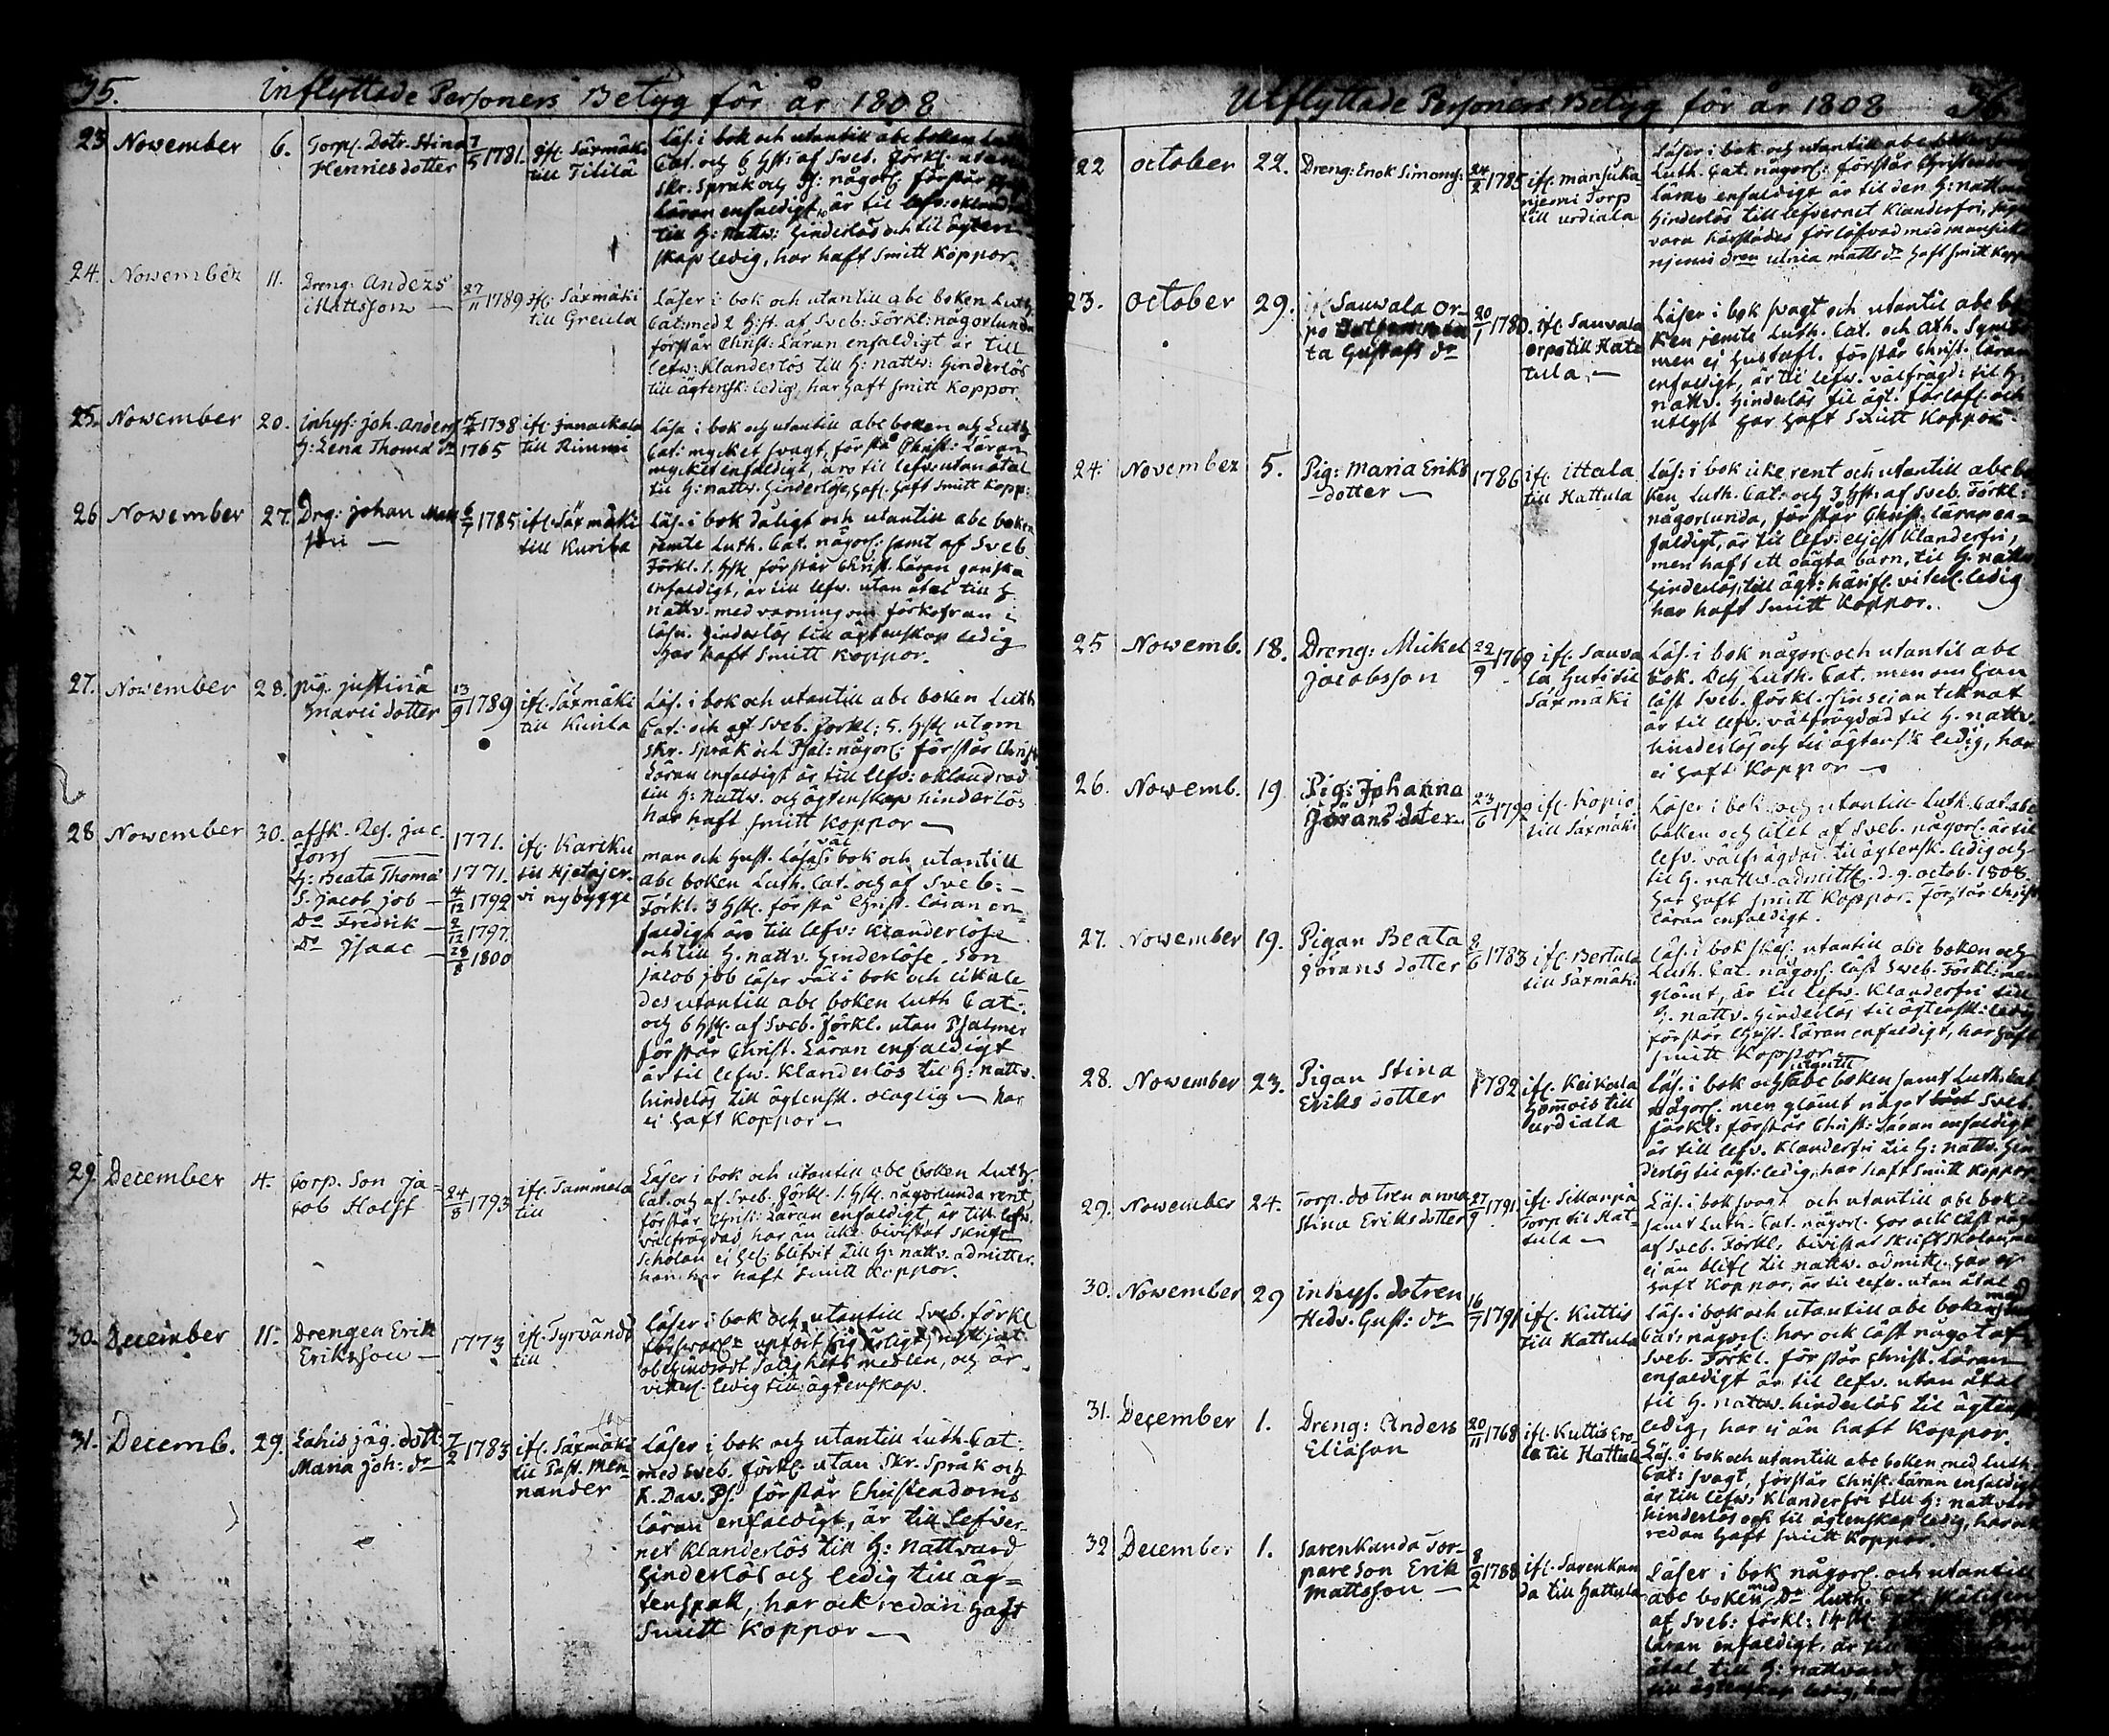 95.
Inflyttade Personers Betyg för år 1808
23 November 6. Torp. Dotr. Stina Henricsdotter 7/5 1781. ifl. Säxmäki till Tilila
Läs. i bok och utantill abc boken Luth.
Cat. och 6 Hst: af Sveb. Förkl. utan
skr. Språk och Ps: någorl: förstår
Läran enfaldigt, är til lefv: oklandrad
till H: Nattv: hinderlös och til ägten-
skap ledig, har haft Smitt Koppor.
24. November 11. Dreng: Anders Mattsson — 27/11 1789 ifl. Säxmäki till Greula
Läser i bok och utantill abc boken Luth.
Cat: med 2 Hst. af Sveb: Förkl: någorlunda
förstår Christ: Läran enfaldigt är till
lefw: Klanderlös till H: nattw: hinderlös
till ägtensk: ledig, har haft smitt Koppor.
25. November 20. inhys: Joh. Anders 1738 ifl. Janackala
H: Lena Thoma dr 1765 till Rimmi
läsa i bok och utantill abc boken och Luth
Cat: mycket svagt, förstå Christ: Läran
mycket enfaldigt, äro til lefv: utan åtal
til H: nattv. hinderlöse, haf. haft smitt Kopp:
26 November 27. Drg: Johan Matts
son — 6/7 1785 ifl. Säxmäki till Kurila
läs. i bok dåligt och utantill abc boken
jemte Luth. Cat. någorl: samt af Sveb
Förkl. 1. Hst förstår Christ. Läran ganska
enfaldigt, är till lefv. utan åtal till H
nattv. med varning om förkofran i
läsn. hinderlös till ägtenskap ledig
har haft Smitt Koppor.
27. November 28. Pig. Justina
Marci dotter 13/9 1789 ifl. Säxmäki till Kurila
Läs. i bok och utantill abc boken Luth
Cat: och af Sveb. Förkl: 5. Hst utom
skr. Språk och Psal: någorl: förstår Christ
Läran enfaldigt är till lefv: oklandrad
till H: Nattv. och ägtenskap hinderlös
har haft smitt Koppor —
28 November 30. afsk. Res. Jac.
Forss — 1771. ifl. Kariku
H: Beata Thoma 1771. till Hjetajer-
S. Jacob Job — 4/12 1792 vi nybygge
Do Fredrik — 2/12 1797.
Do Isaac — 28/8 1800
man och hust. läsa väl i bok och utantill
abc boken Luth. Cat. och af Sveb: —
Förkl. 3 Hst. förstå Christ. Läran en-
faldigt äro till lefv: Klanderlöse
och till H. nattv. hinderlöse. Son
Jacob Job läser väl i bok och likale-
des utantill abc boken Luth Cat:
och 6 Hst. af Sveb. Förkl. utan Psalmer
förstår Christ. Läran enfaldigt
är til lefw. Klanderlös til H: nattv.
hindelös till ägtensk. olaglig — har
ei haft Koppor —
29 December 4. torp. Son Ja-
cob Holst 24/8 1793 ifl. Tammela till
Läser i bok och utantill abc boken Luth.
Cat. och af Sveb. Förkl. 1. Hst. någorlunda rent
förstår Christ: Läran enfaldigt, är till lefw.
välfrägdad har än icke bivistat Skrift
Scholan ej hel. blifvit till H: nattv. admitter.
han har haft Smitt Koppor.
30. December 11. Drengen Erik
Eriksson — 1773 ifl. Tyrvändö till
läser i bok och utantill Sveb. förkl
försvarl. upfört sig ärligt,
Salighets medlen, och är
vitterl. ledig till ägtenskap.
31. Decemb. 29. Lahis jäg: dott:
Maria Joh: dr 7/2 1783 ifl. Säxmäki
till Past. Men-
nander
Läser i bok och utantill Luth. Cat.
med Sveb. förkl. utan Skr. Språk och
K. Dav. Ps. förstår Christendoms
läran enfaldigt, är till lefver-
net Klanderlös till H: Nattvard
hinderlös och ledig till äg-
tenspak, har ock redan haft
Smitt Koppor —
Utflyttade Personers Betyg för år 1808
96.
22 October 22. Dreng: Enok Simons: 24/2 1785 ifl. Mansika-
njemi Torp
till Urdiala
Läser i bok och utantill abc boken
Luth. Cat. någorl: förstår Christendoms
Läran enfaldigt är til den H: nattv
hinderlös till lefvernet Klanderfri,
vara härstädes förlofvad med Mansik
njemi dren Ulrica Matts dr haft Smitt Kopp
23. October 29. Sauwala Or-
po
ta Gustafs dr 20/1 1780. ifl. Sauvala
Orpo till Hat-
tula —
Läser i bok svagt och utantil abc bo
ken jemte Luth. Cat. och Ath. Symb
men ej Hustafl. förstår Christ. läran
enfaldigt, är til lefw. välfrägd: til H.
nattv. hinderlös til ägt. förlofl. och
utlyst har haft Smitt Koppor
24. November 5. Pig: Maria Eriks
dotter — 1786 ifl. Ittala
till Hattula
Läs: i bok icke rent och utantill abc bo
ken Luth. Cat: och 3 Hst: af Sveb. Förkl:
någorlunda, förstår Christ. Läran en=
faldigt, är til lefv: eljest Klanderfri,
men haft ett oägta barn, til H. nattv
hinderlös, till ägt: härifl. viterl. ledig
har haft Smitt Koppor.
25 Novemb. 18. Dreng: Mickel
Jacobsson 22/9 1769 ifl. Sauva
la Huti till
Säxmäki
Läs. i bok någorl. och utantil abc
bok. och Luth. Cat. men om han
läst Sveb. Förkl. fins ej antecknat
är til lefv. välfrägdad til H. nattv.
hinderlös och til ägtensk ledig, har
ei haft Koppor —
26. Novemb. 19 Pig: Johanna
Jörans doter 23/6 1792 ifl. Kopio
till Säxmäki
Läser i bok och utantill Luth. Cat. abc
boken och litet af Sveb. någorl. är til
lefv. välfrägdad til ägtensk. ledig och
til H. nattv. admitt. d. 9. octob. 1808.
har haft smitt Koppor. Förstår Christ
läran enfaldigt.
27. November 19. Pigan Beata
Jörans dotter 8/6 1783 ifl. Bertula
till Säxmäki
Läs. i bok utantill abc boken och
Luth. Cat. någorl. läst Sveb. Förkl: men
glömt, är til lefw. Klanderfri till
H. nattv. hinderlös til ägtensk: ledig
förstår Christ. Läran enfaldigt, har haft
smitt Koppor
28. November 23. Pigan Stina
Eriks dotter 1782 ifl. Keikala
Homois till
Urdiala
Läs. i bok och utantil abc boken samt Luth. Cat
någorl. men glömt något Sveb.
förkl: förstår Christ: Läran enfaldigt
är till lefv. Klanderfri till H: nattv. hin
derlös til ägt: ledig, har haft smitt Koppor
29. November 24. Torp. dotren Anna
Stina Eriksdotter 27/9 1791 ifl. Sillanpä
Torp til Hat-
tula —
Läs. i bok svagt och utantill abc boken
samt Luth. Cat. någorl. har ock läst någ
af Sveb. Förkl. bivistat Skriftskolan
ej än blifl. til nattv. admitt. har ej
haft Koppor, är til lefv. utan åtal
30. November 29 inhys. dotren
Hedv. Gust: dr 16/7 1791 ifl. Kuttis
till Hattula
läs. i bok och utantill abc boken med Luth
Cat: någorl. har ock läst något af
Sveb. Förkl. förstår Christ. Läran
enfaldigt är til lefv. utan åtal
til H. nattw. hinderlös til ägtensk
ledig, har ei än haft Koppor.
31. December 1. Dreng: Anders
Eliason 20/11 1768 ifl. Kuttis Ero
la til Hattula
Läs. i bok och utantill abc boken med Luth.
Cat: svagt, förstår Christ: Läran enfaldigt
är till lefw: Klanderfri till H: nattvard
hinderlös och til ägtenskap ledig, har ock
redan haft smitt Koppor.
32 December 1. Sarenkunda Tor-
pare Son Erik
Mattsson — 8/2 1788 ifl. Sarenkun
da till Hattula
Läser i bok någorl. och utantill
abc boken med Dr Luth. Cat.
af Sveb: förkl:
Läran enfaldigt, är till
åtal till H: nattvard
till ägtenskap ledig, har